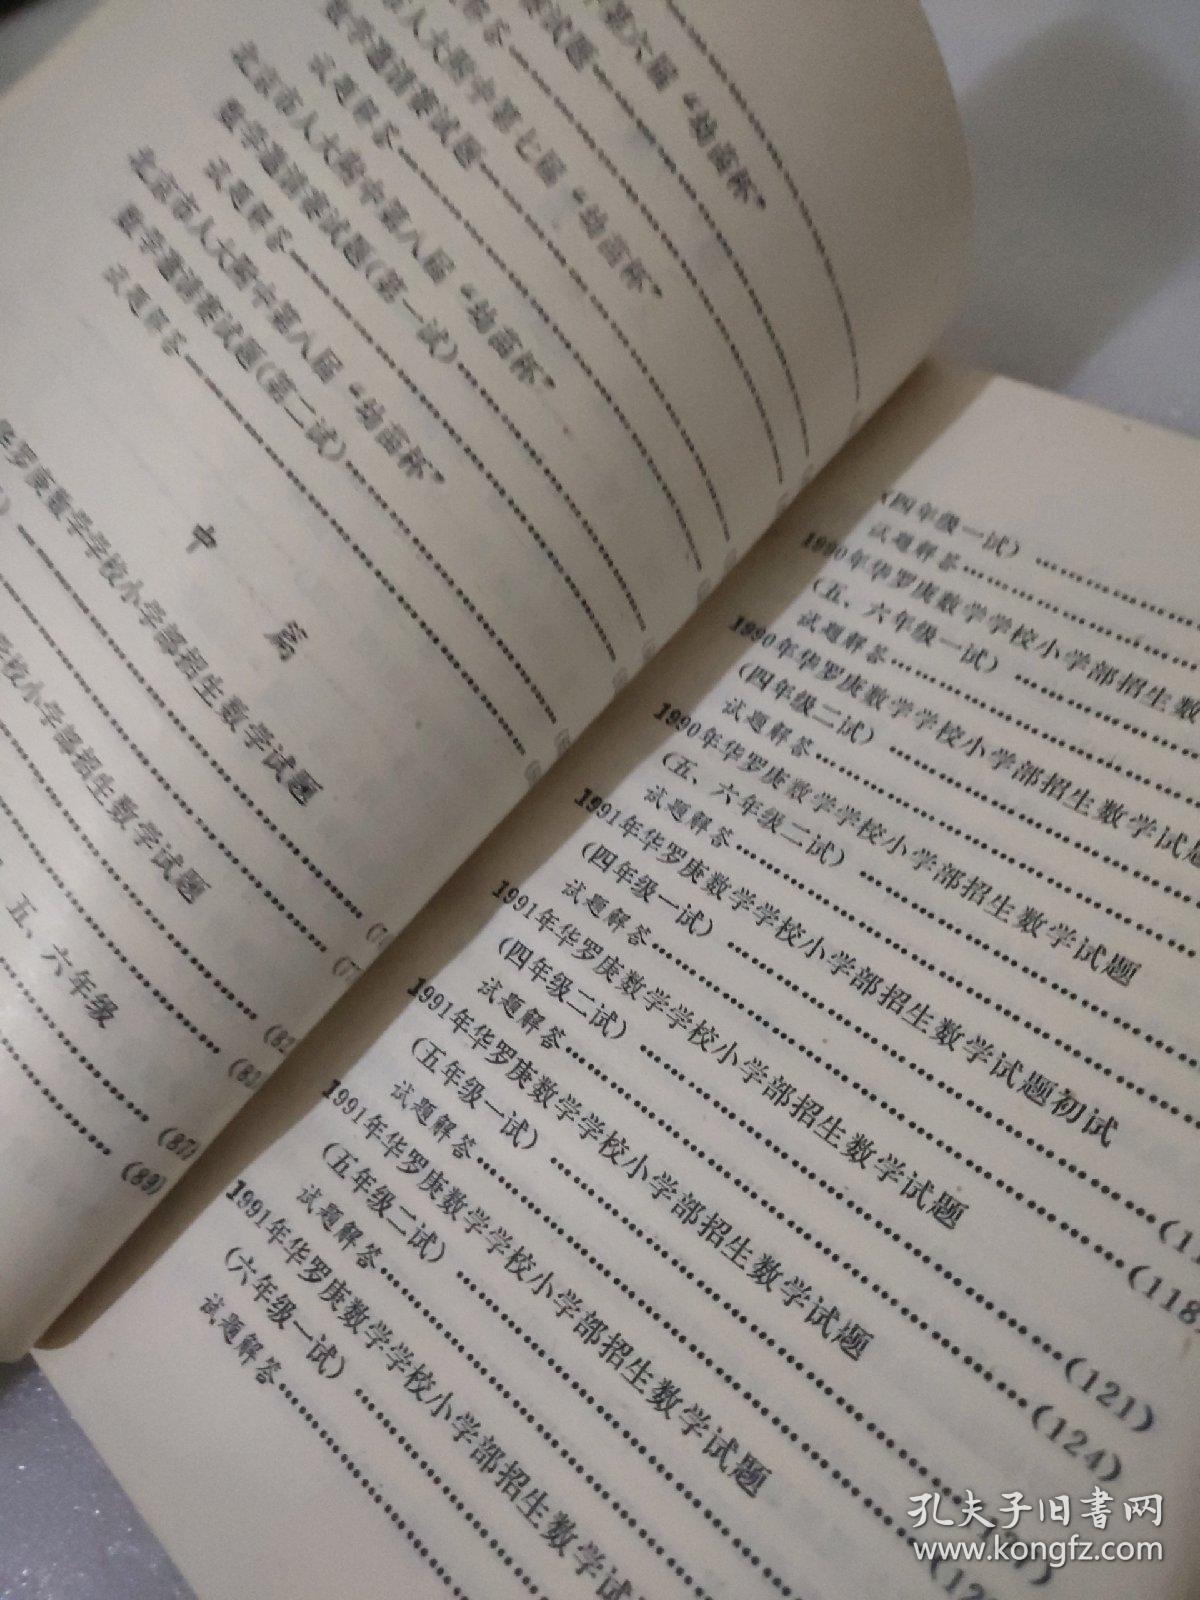 第六届“幼苗杯”
试题
试题解答
人大附中第七届“幼苗杯”
数学邀请赛试题
试题解答
北京市人大附中第八届“幼苗杯”
数学邀请赛试题(第一试)
试题解答
北京市人大附中第八届“幼苗杯”
数学邀请赛试题(第二试)
试题解答
中篇
华罗庚数学学校小学部招生数学试题
学校小学部招生数学试题
五、六年级
(87)
(89)
(四年级一试)
试题解答
1990年华罗庚数学学校小学部招生数
(五、六年级一试)
试题解答
1990年华罗庚数学学校小学部招生数学试题
(四年级二试)
试题解答
1990年华罗庚数学学校小学部招生数学试题
(五、六年级二试)
试题解答
1991年华罗庚数学学校小学部招生数学试题初试
(四年级一试)
试题解答……(118)
1991年华罗庚数学学校小学部招生数学试题
(四年级二试)……(121)
试题解答……(124)
1991年华罗庚数学学校小学部招生数学试题
(五年级一试)……(127)
试题解答
1991年华罗庚数学学校小学部招生数学试题
(五年级二试)
试题解答
1991年华罗庚数学学校小学部招生数学试
(六年级一试)
试题解答
孔夫子旧书网
www.kongfz.com